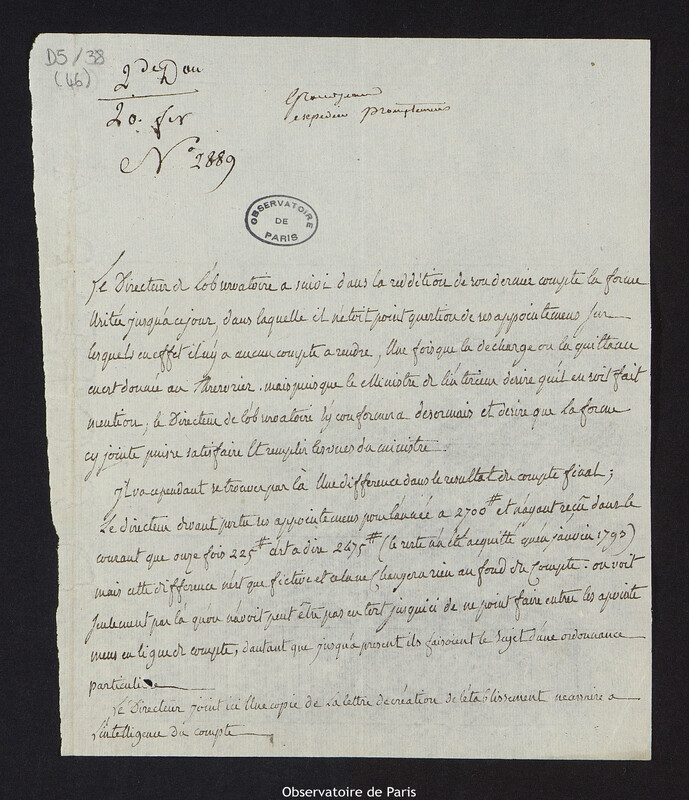 D5/38
(46)
2de Don
20. fev
No 2889
expedier promptement
OBSERVATOIRE
DE
PARIS
Le Directeur de l'observatoire a suivi dans la reddition de son dernier compte la forme
Usitée jusqu'a ce jour, dans laquelle il n'etoit point question de ses appointemens sur
lesquels en effet il n'y a aucun compte a rendre, Une fois que la decharge ou la quittance
en est donnée au Thresorier. mais puisque le Ministre de l'interieur desire qu'il en soit fait
mention; le Directeur de l'observatoire s'y conformera desormais et desire que la forme
cy jointe puisse satisfaire Et remplir les vues du ministre.
Il va cependant se trouver par là Une difference dans le resultat du compte final;
Le directeur devant porter ses appointemens pour l'année a 2700# et n'ayant reçu dans le
courant que onze fois 225# c'est a dire 2475# (le reste n'a été acquitté qu'en janvier 1793)
mais cette difference n'est que fictive et cela ne changera rien au fond du Compte. on voit
seulement par là qu'on n'avoit peut être pas eu tort jusqu'ici de ne point faire entrer les apointe
mens en ligne de compte, dautant que jusqu'a present ils faisoient le sujet d'une ordonnance
particuliere
Le Directeur joint ici Une copie de la lettre de création de l'etablissement necessaire a
l'intelligence du compte
Observatoire de Paris